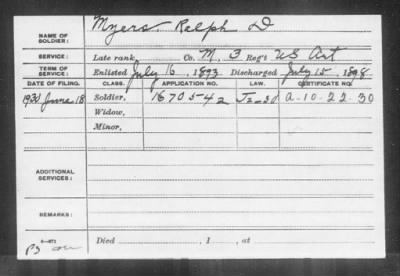 NAME OF SOLDIER: Myers, Ralph D
SERVICE: Late rank, Co. M, 3 Reg't US Art
TERM OF SERVICE: Enlisted July 16, 1893 Discharged July 15, 1898
DATE OF FILING. CLASS. APPLICATION NO. LAW. CERTIFICATE NO.
1930 June 18 Soldier, 1670542 A-10-22-30
Widow,
Minor,
ADDITIONAL SERVICES:
REMARKS:
Died , 1 , at